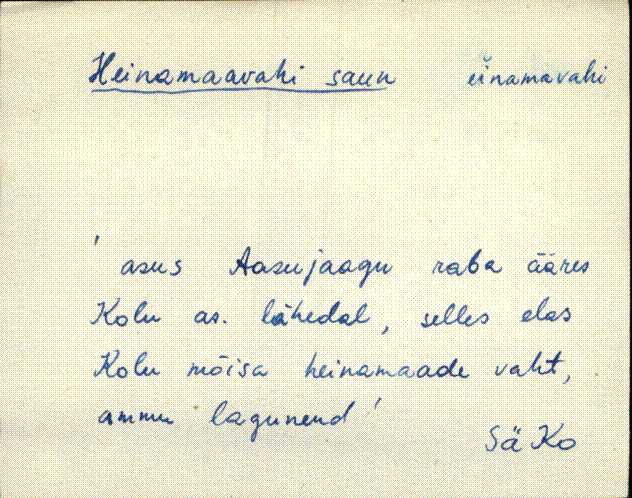 Heinamaavahi saun einamavahi
' asus Aasujaagu raba ääres
Kolu as. lähedal, selles elas
Kolu mõisa heinamaade vaht,
ammu lagunend '
Sä Ko